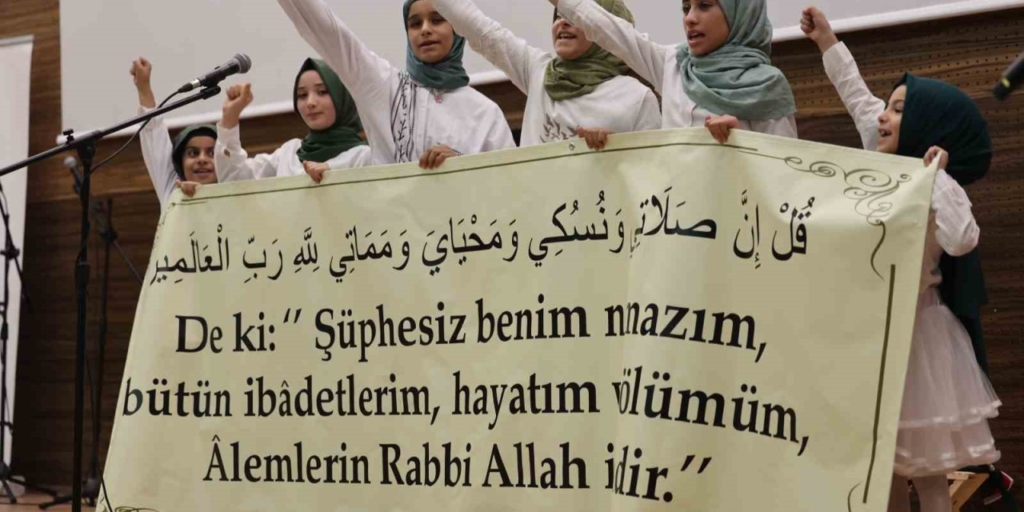 قُلْ إِنَّ صَلَاتِي وَنُسُكِي وَمَحْيَايَ وَمَمَاتِي لِلَّهِ رَبِّ الْعَالَمِينَ
De ki:" Şüphesiz benim namazım,
bütün ibâdetlerim, hayatım ve ölümüm,
Âlemlerin Rabbi Allah içindir."